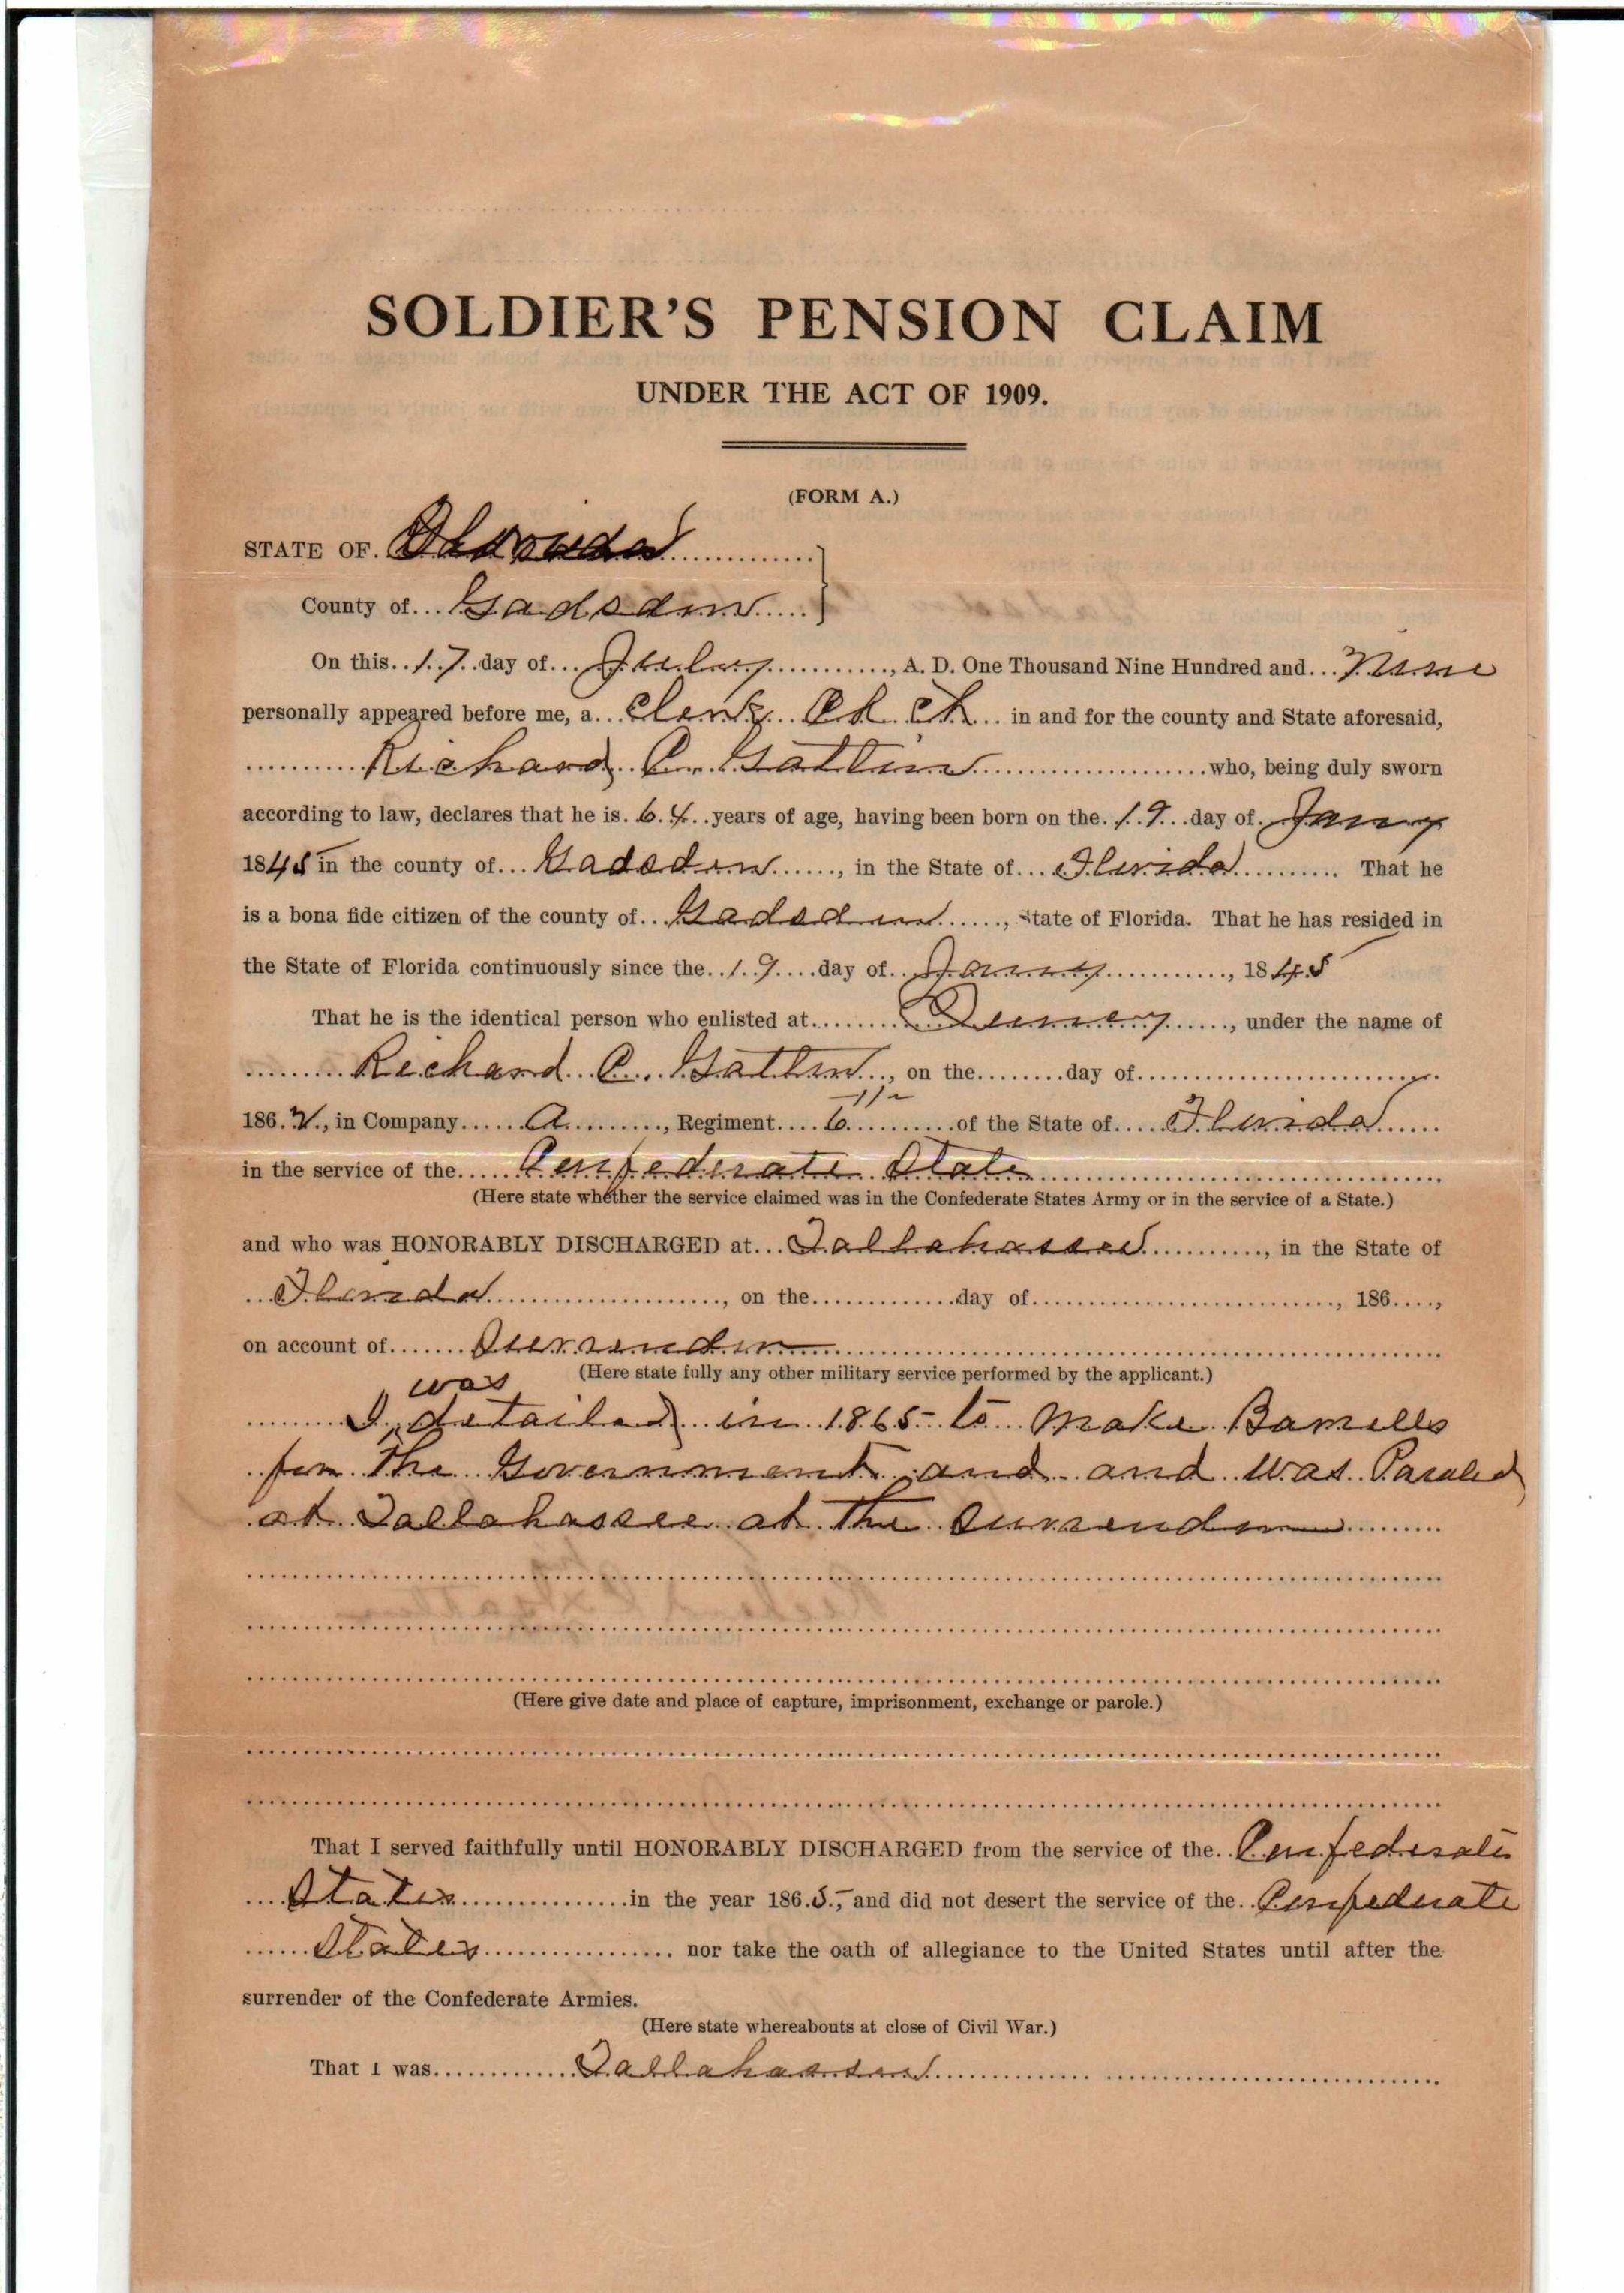 SOLDIER'S PENSION CLAIM
UNDER THE ACT OF 1909.
(FORM A.)
STATE OF Florida
County of Gadsden
On this 17 day of July, A. D. One Thousand Nine Hundred and Nine
personally appeared before me, a Clerk in and for the county and State aforesaid,
Richard C. Gatlin who, being duly sworn
according to law, declares that he is 64 years of age, having been born on the 19 day of Jany
1845 in the county of Gadsden, in the State of Florida. That he
is a bona fide citizen of the county of Gadsden, State of Florida. That he has resided in
the State of Florida continuously since the 19 day of Jany, 1845
That he is the identical person who enlisted at Quincy, under the name of
Richard C. Gatlin, on the day of
1862, in Company A, Regiment 6 of the State of Florida
in the service of the Confederate State
(Here state whether the service claimed was in the Confederate States Army or in the service of a State.)
and who was HONORABLY DISCHARGED at Tallahassee, in the State of
Florida, on the day of, 186,
on account of Surrender
(Here state fully any other military service performed by the applicant.)
I was detailed in 1865 to Make Barrells
for the Government and and was Paroled
at Tallahassee at the Surrender
(Here give date and place of capture, imprisonment, exchange or parole.)
That I served faithfully until HONORABLY DISCHARGED from the service of the Confederate
States in the year 1865, and did not desert the service of the Confederate
States nor take the oath of allegiance to the United States until after the
surrender of the Confederate Armies.
(Here state whereabouts at close of Civil War.)
That I was Tallahassee